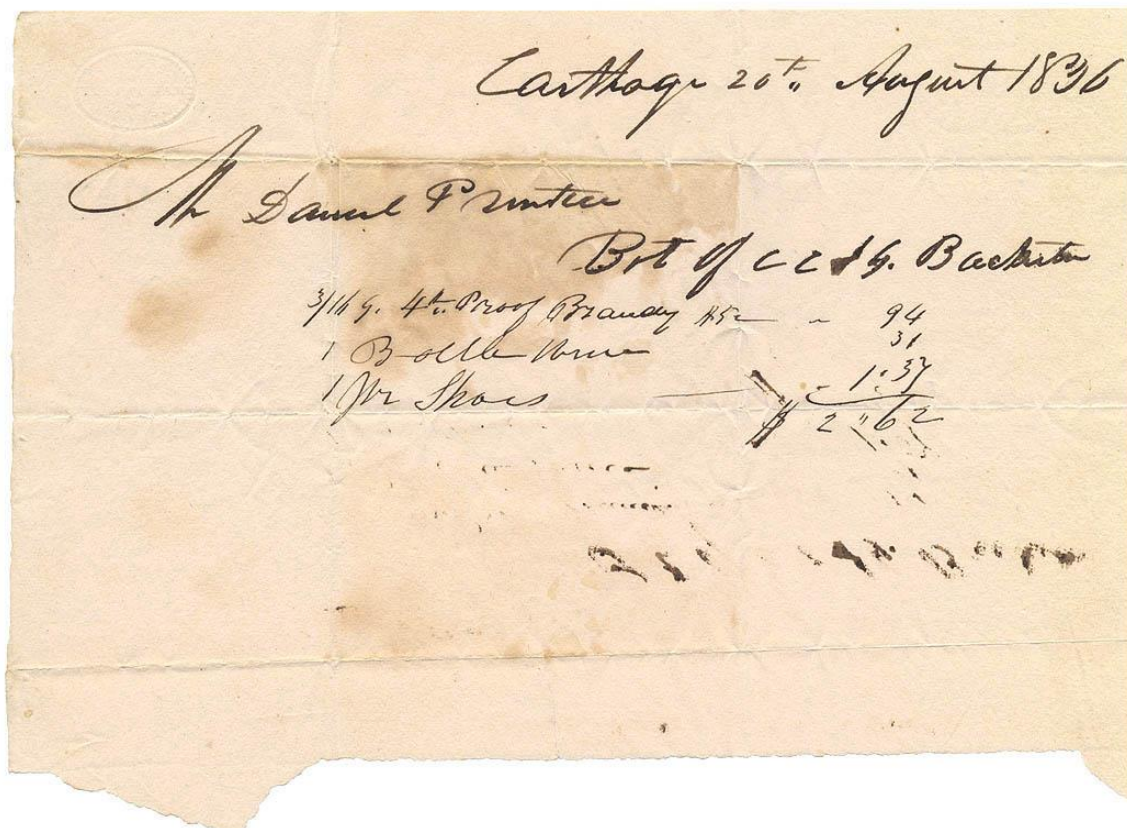 Carthage 20th August 1836
Mr Daniel Prentice
Bot of C C & G. Backster
3/16 g. 4th Proof Brandy 94
1 Bottle Wine 31
1 pr Shoes 1.37
$ 2 " 62